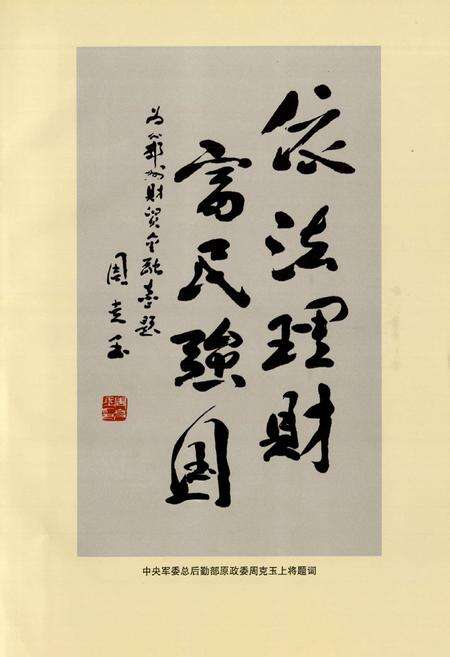 依法理財
富民強国
为鄞州财贸金融志题
周克玉
中央军委总后勤部原政委周克玉上将题词